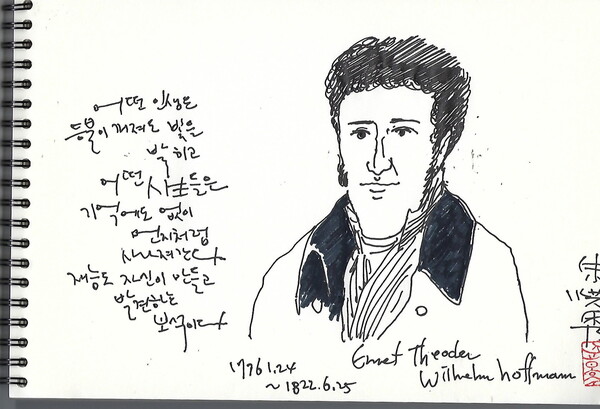 어떤 인생은
등불이 꺼져도 빛을
밝히고
어떤 사람들은
기억에도 없이
먼지처럼
사라져간다
재능도 자신이 만들고
발견하는
보석이다
1776.1.24
~1822.6.25
Ernst Theodor
Wilhelm Hoffmann